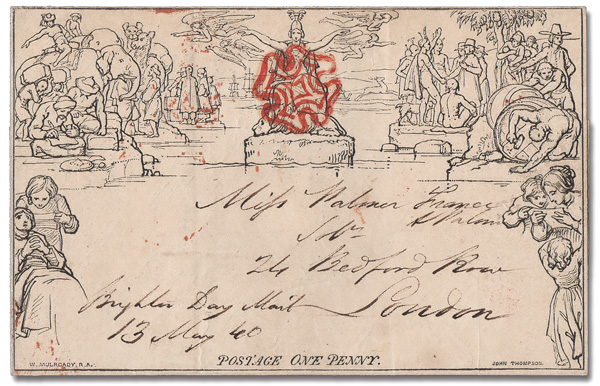 Miss Palmer Francis
& Palmer
24 Bedford Row
London
Brighton Day Mail
13 May 40
POSTAGE ONE PENNY.
W. MULREADY, R.A.
JOHN THOMPSON.